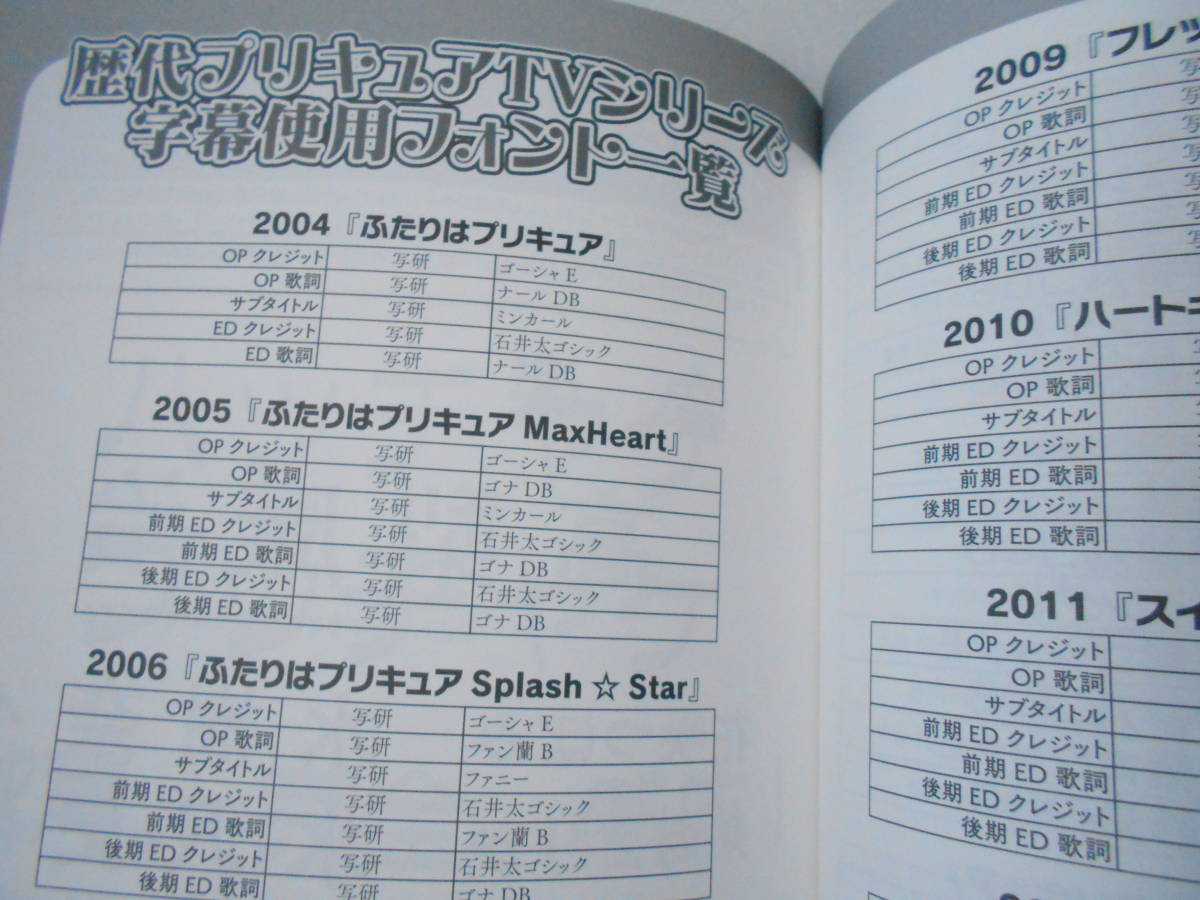 歴代プリキュアTVシリーズ
字幕使用フォント一覧
2004『ふたりはプリキュア』
OP クレジット 写研 ゴーシャ E
OP 歌詞 写研 ナール DB
サブタイトル 写研 ミンカール
ED クレジット 写研 石井太ゴシック
ED 歌詞 写研 ナール DB
2005『ふたりはプリキュア MaxHeart』
OP クレジット 写研 ゴーシャ E
OP 歌詞 写研 ゴナ DB
サブタイトル 写研 ミンカール
前期 ED クレジット 写研 石井太ゴシック
前期 ED 歌詞 写研 ゴナ DB
後期 ED クレジット 写研 石井太ゴシック
後期 ED 歌詞 写研 ゴナ DB
2006『ふたりはプリキュア Splash ☆ Star』
OP クレジット 写研 ゴーシャ E
OP 歌詞 写研 ファン蘭 B
サブタイトル 写研 ファニー
前期 ED クレジット 写研 石井太ゴシック
前期 ED 歌詞 写研 ファン蘭 B
後期 ED クレジット 写研 石井太ゴシック
後期 ED 歌詞 写研 ゴナ DB
2009『フレッ
OP クレジット 写
OP 歌詞 写
サブタイトル 写
前期 ED クレジット 写
前期 ED 歌詞 写
後期 ED クレジット 写
後期 ED 歌詞 写
2010『ハートキ
OP クレジット
OP 歌詞
サブタイトル
前期 ED クレジット
前期 ED 歌詞
後期 ED クレジット
後期 ED 歌詞
2011『スイ
OP クレジット
OP 歌詞
サブタイトル
前期 ED クレジット
前期 ED 歌詞
後期 ED クレジット
後期 ED 歌詞